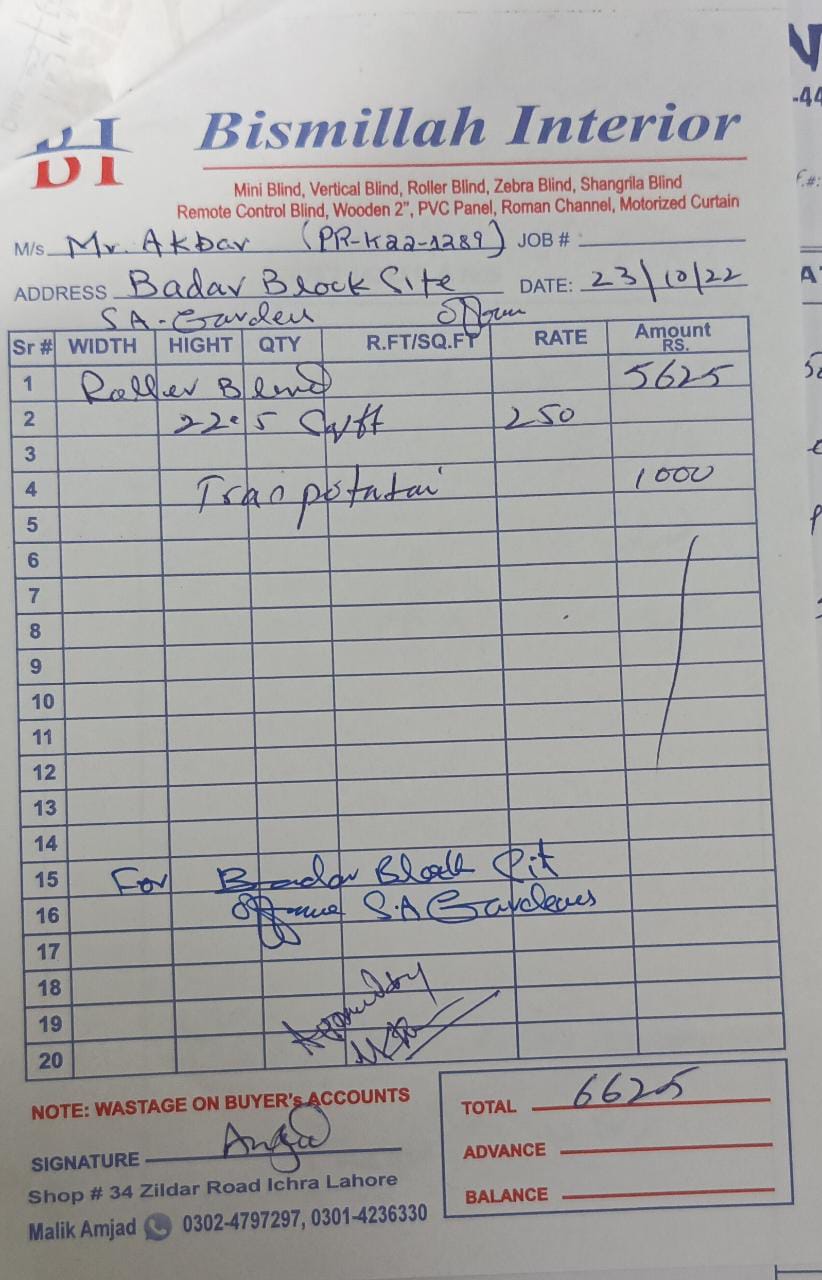 BI Bismillah Interior
Mini Blind, Vertical Blind, Roller Blind, Zebra Blind, Shangrila Blind
Remote Control Blind, Wooden 2", PVC Panel, Roman Channel, Motorized Curtain
M/s Mr. Akbar (PR-K22-1289) JOB #
ADDRESS Badar Block Site DATE: 23/10/22
SA-Garden
Sr # WIDTH HIGHT QTY R.FT/SQ.FT RATE Amount RS.
1 Roller Blend 5625
2 22.5 Sqft 250
3
4 Tranpotatai 1000
5
6
7
8
9
10
11
12
13
14
15 For Badar Block
16 S.A Gardens
17
18
19
20
NOTE: WASTAGE ON BUYER's ACCOUNTS
TOTAL 6625
SIGNATURE
ADVANCE
BALANCE
Shop # 34 Zildar Road Ichra Lahore
Malik Amjad 0302-4797297, 0301-4236330